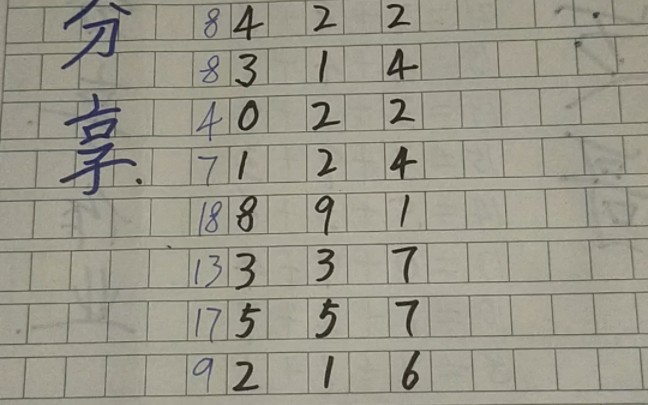 分享.
8 4 2 2
8 3 1 4
4 0 2 2
7 1 2 4
18 8 9 1
13 3 3 7
17 5 5 7
9 2 1 6